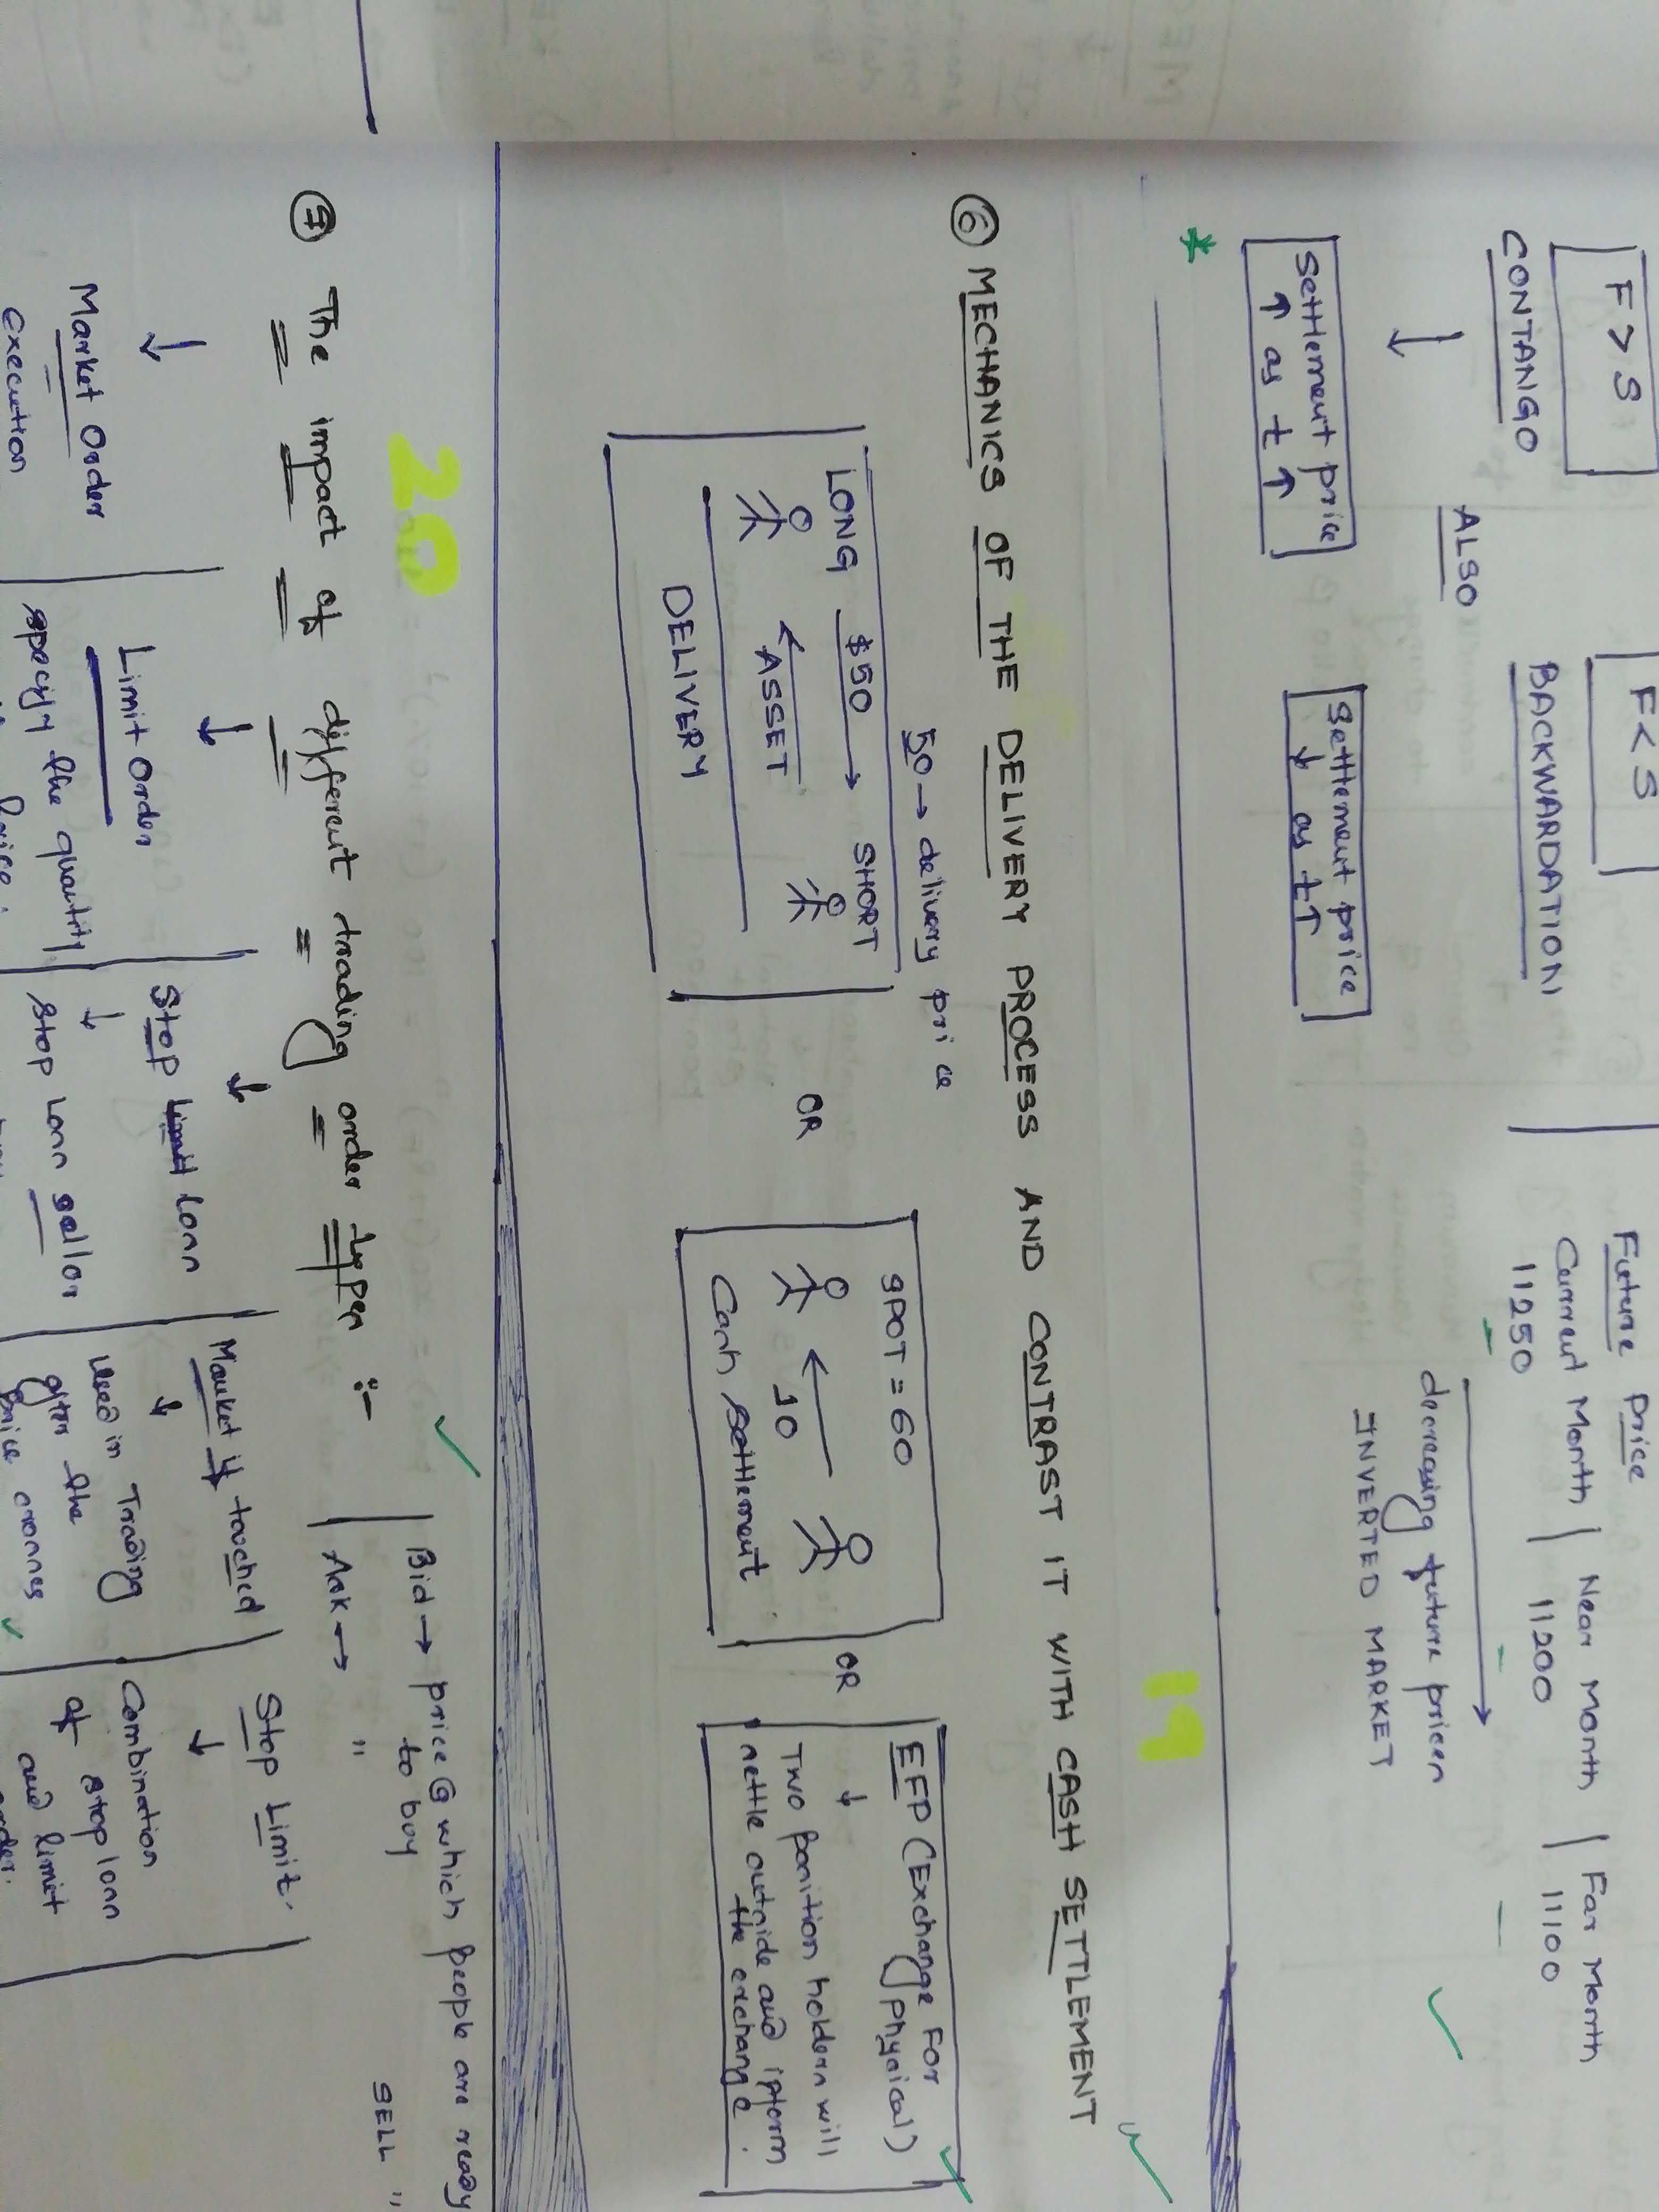 F > S
F < S
CONTANGO
BACKWARDATION
ALSO
↓
Settlement price
↑ as t ↑
Settlement price
↓ as t ↑
Future price
Current Month | Near Month | Far Month
11250 11200 11100
decreasing future prices
INVERTED MARKET
*
19
⑥ MECHANICS OF THE DELIVERY PROCESS AND CONTRAST IT WITH CASH SETTLEMENT
50 → delivery price
LONG $50 → SHORT
← ASSET
DELIVERY
OR
SPOT = 60
← 10
Cash settlement
OR
EFP (Exchange For
Physical)
↓
Two position holders will
settle outside and inform
the exchange.
20
⑦ The impact of different trading order types :-
Bid → price @ which people are ready
to buy
Ask → " SELL "
↓
Market Order
execution
↓
Limit Order
specify the quantity
price
↓
Stop Limit Loss
↓
Stop Loss sell or
Market if touched
↓
Used in Trading
after the
price crosses
Stop Limit.
↓
Combination
of stop loss
and limit
order.